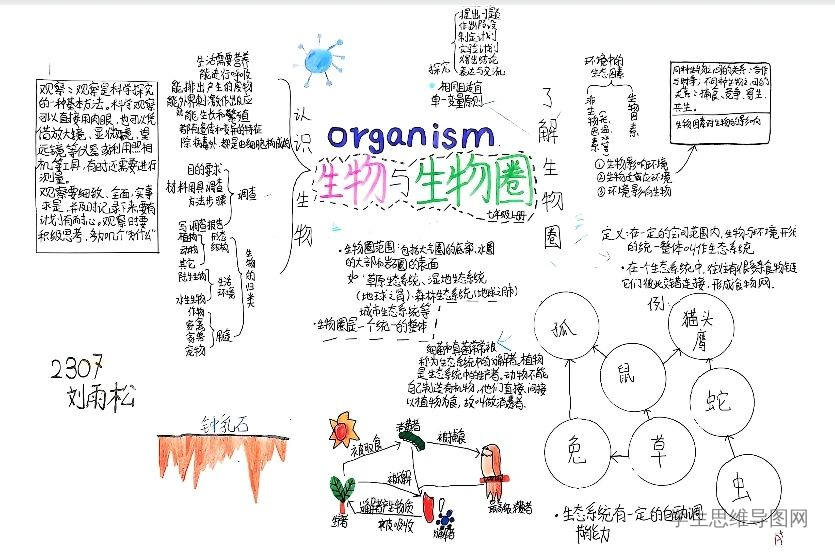 观察：观察是科学探究
的一种基本方法。科学观察
可以直接用肉眼，也可以凭
借放大镜、显微镜、望
远镜等仪器或利用照相
机等工具，有时还需要进行
测量。
观察要细致、全面、实事
求是，并及时记录下来，要有
计划有耐心。观察时要
积极思考，多问几个"为什么"
生活需要营养
能进行呼吸
能排出产生的废物
能对外界刺激作出反应
能生长和繁殖
都有遗传和变异的特征
除病毒外，都是由细胞构成的
目的要求
材料用具
方法步骤
调查
调查
写调查报告
植物
动物
其它
形态
结构
陆生生物
水生生物
生活
环境
作物
家禽
家畜
宠物
用途
生物的归类
认识生物
organism
生物与生物圈
七年级上册
提出问题
作出假设
制定计划
实施计划
得出结论
表达与交流
探究
单一变量原则
了解生物圈
环境中的
生态因素
生物因素
①生物影响环境
②生物适应环境
③环境影响生物
生物因素对生物的影响
·生物圈范围：包括大气圈的底部、水圈
的大部和岩石圈的表面
如：草原生态系统、湿地生态系统
(地球之肾)、森林生态系统(地球之肺)
城市生态系统等
·生物圈是一个统一的整体
称为生态系统中的分解者。植物
是生态系统中的生产者。动物不能
自己制造有机物，他们直接、间接
以植物为食，故叫做消费者。
定义：在一定的空间范围内，生物与环境形成
的统一整体叫作生态系统
·在一个生态系统中，往往有很多条食物链
它们彼此交错连接，形成食物网。
例：
狐
猫头鹰
鼠
蛇
兔
草
虫
·生态系统有一定的自动调
节能力
2307
刘雨松
钟乳石
消费者
被取食
被捕食
被分解
被吸收
学生思维导图网